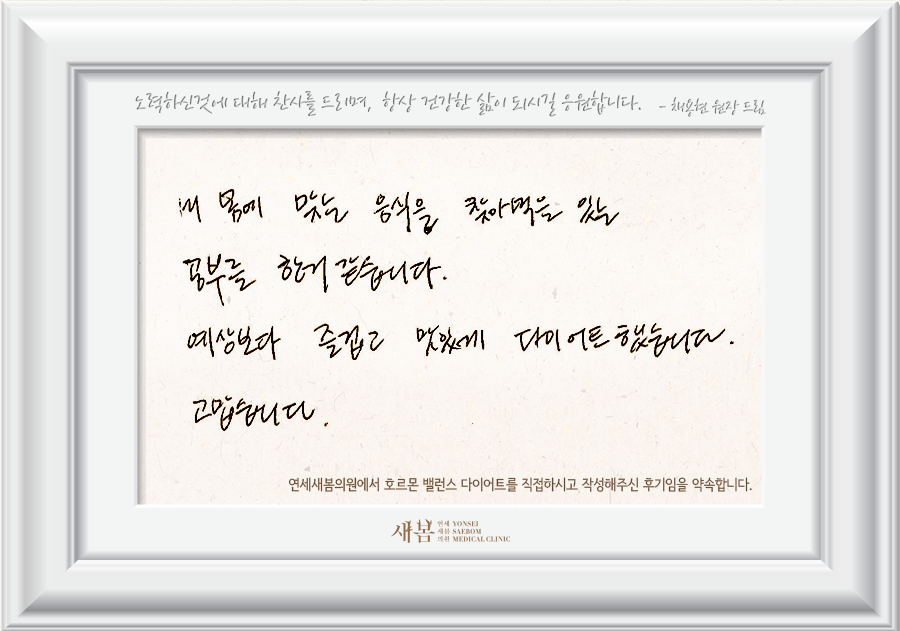 노력하신것에 대해 찬사를 드리며, 항상 건강한 삶이 되시길 응원합니다. - 채용현 원장 드림
내 몸에 맞는 음식을 찾아먹을 있는
공부를 한거 같습니다.
예상보다 즐겁고 맛있게 다이어트 했습니다.
고맙습니다.
연세새봄의원에서 호르몬 밸런스 다이어트를 직접하시고 작성해주신 후기임을 약속합니다.
새봄 연세 새봄 의원 YONSEI SAEBOM MEDICAL CLINIC